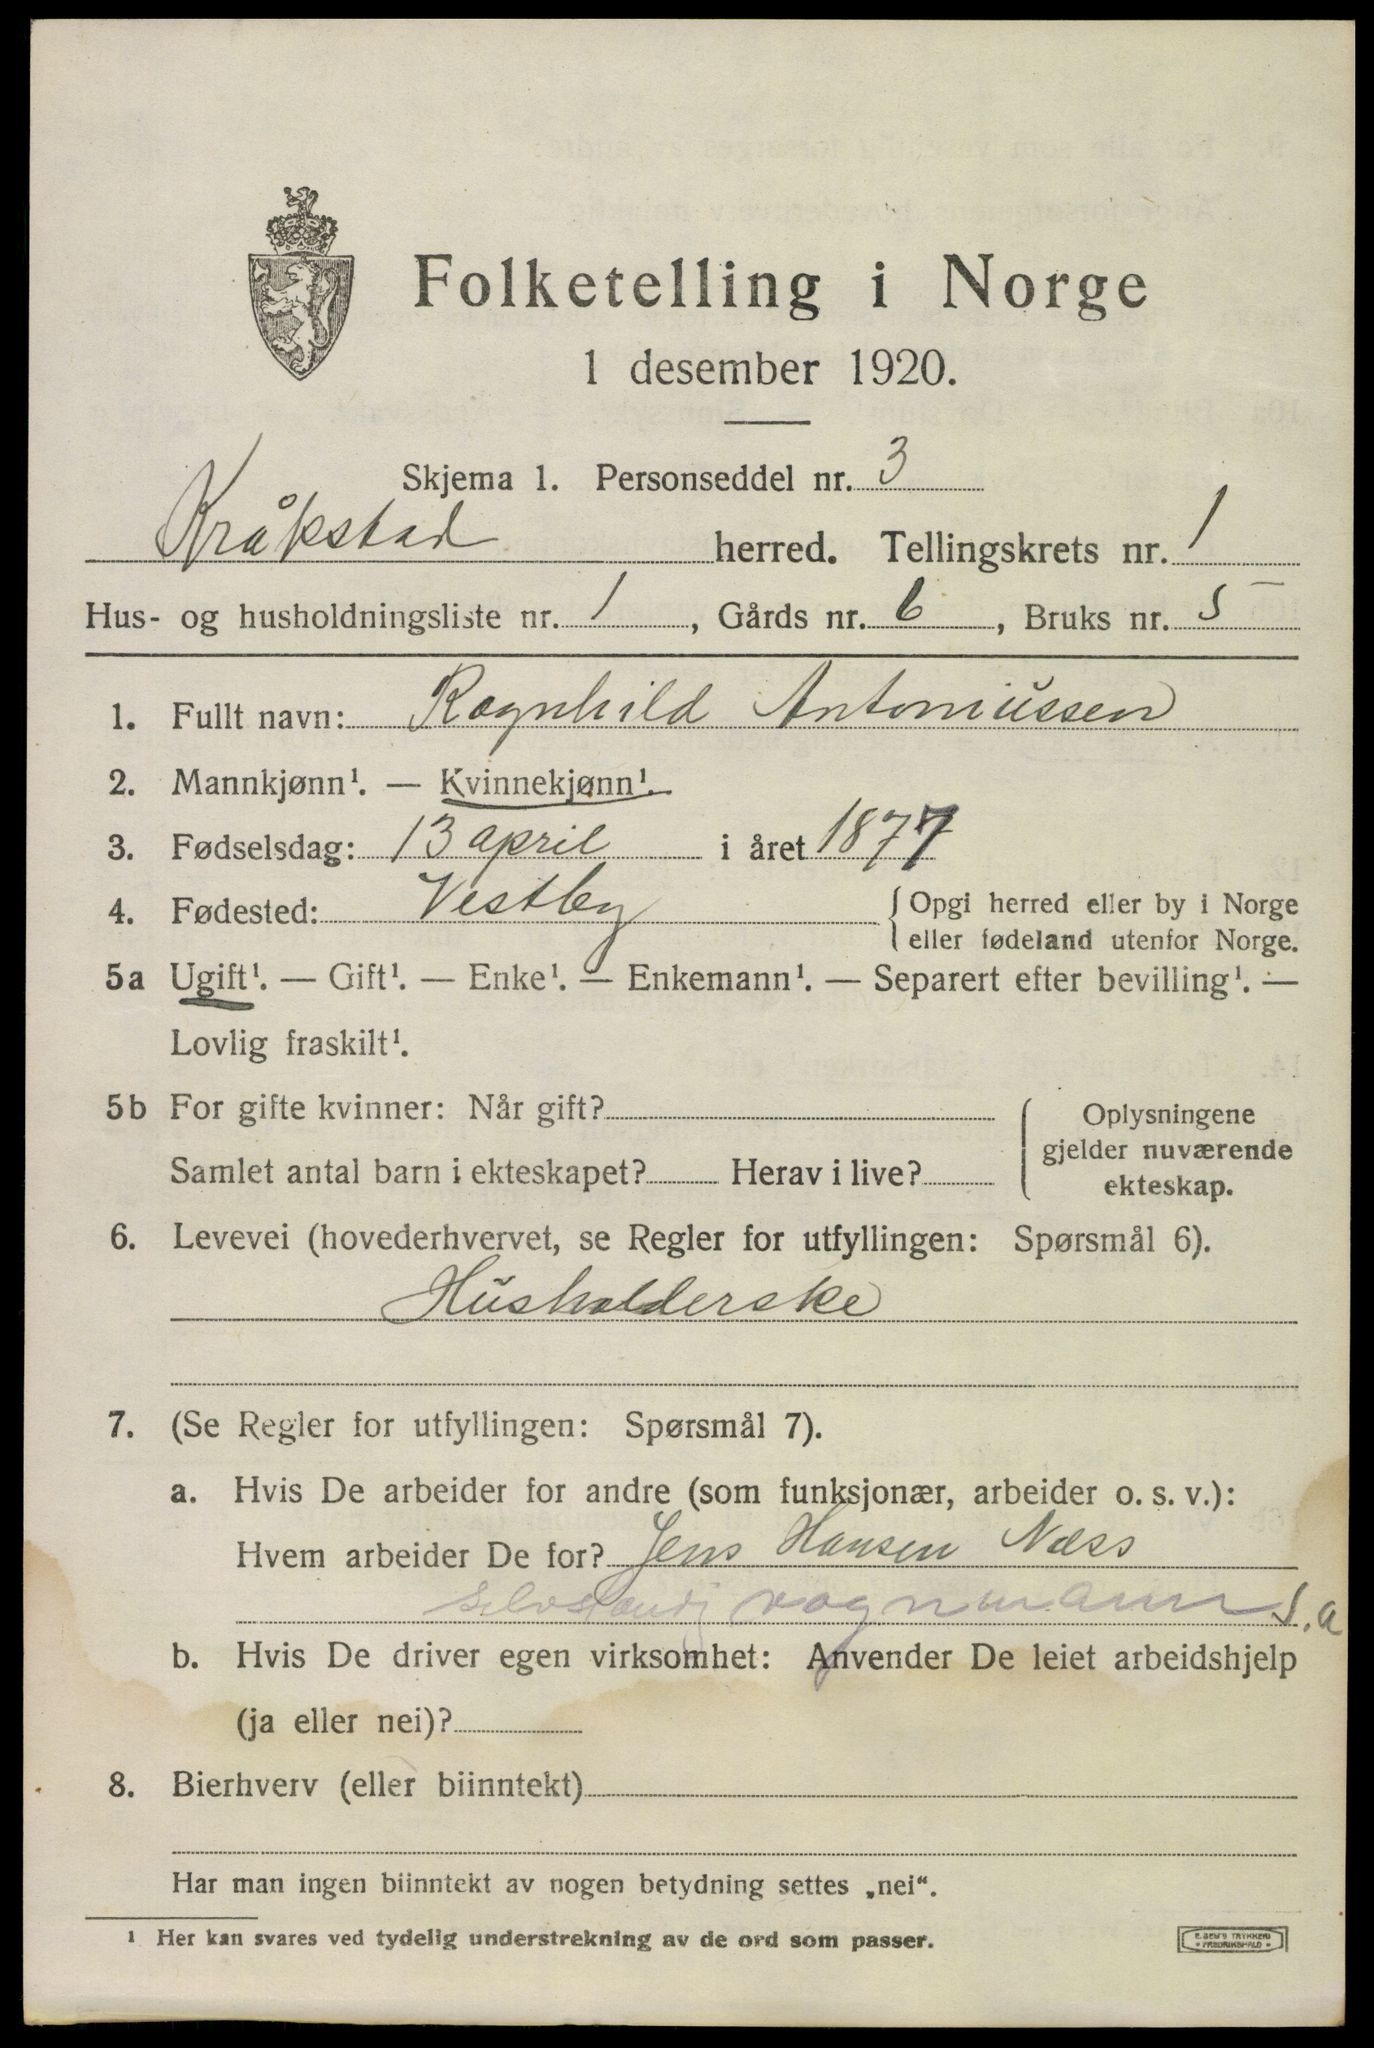 Folketelling i Norge
1 desember 1920.
Skjema 1. Personseddel nr. 3
Kråkstad herred. Tellingskrets nr. 1
Hus- og husholdningsliste nr. 1, Gårds nr. 6, Bruks nr. 5
1. Fullt navn: Ragnhild Antoniussen
2. Mannkjønn¹. — Kvinnekjønn¹.
3. Fødselsdag: 13 april i året 1877
4. Fødested: Vestby { Opgi herred eller by i Norge
eller fødeland utenfor Norge.
5a Ugift¹. — Gift¹. — Enke¹. — Enkemann¹. — Separert efter bevilling¹. —
Lovlig fraskilt¹.
5b For gifte kvinner: Når gift?
Samlet antal barn i ekteskapet? Herav i live?
Oplysningene
gjelder nuværende
ekteskap.
6. Levevei (hovederhvervet, se Regler for utfyllingen: Spørsmål 6).
Husholderske
7. (Se Regler for utfyllingen: Spørsmål 7).
a. Hvis De arbeider for andre (som funksjonær, arbeider o. s. v.):
Hvem arbeider De for? Jens Hansen Næss
selvstændj vognmann s.a
b. Hvis De driver egen virksomhet: Anvender De leiet arbeidshjelp
(ja eller nei)?
8. Bierhverv (eller biinntekt)
Har man ingen biinntekt av nogen betydning settes „nei“.
¹ Her kan svares ved tydelig understrekning av de ord som passer.
E. SEM'S TRYKKERI
• FREDRIKSHALD •